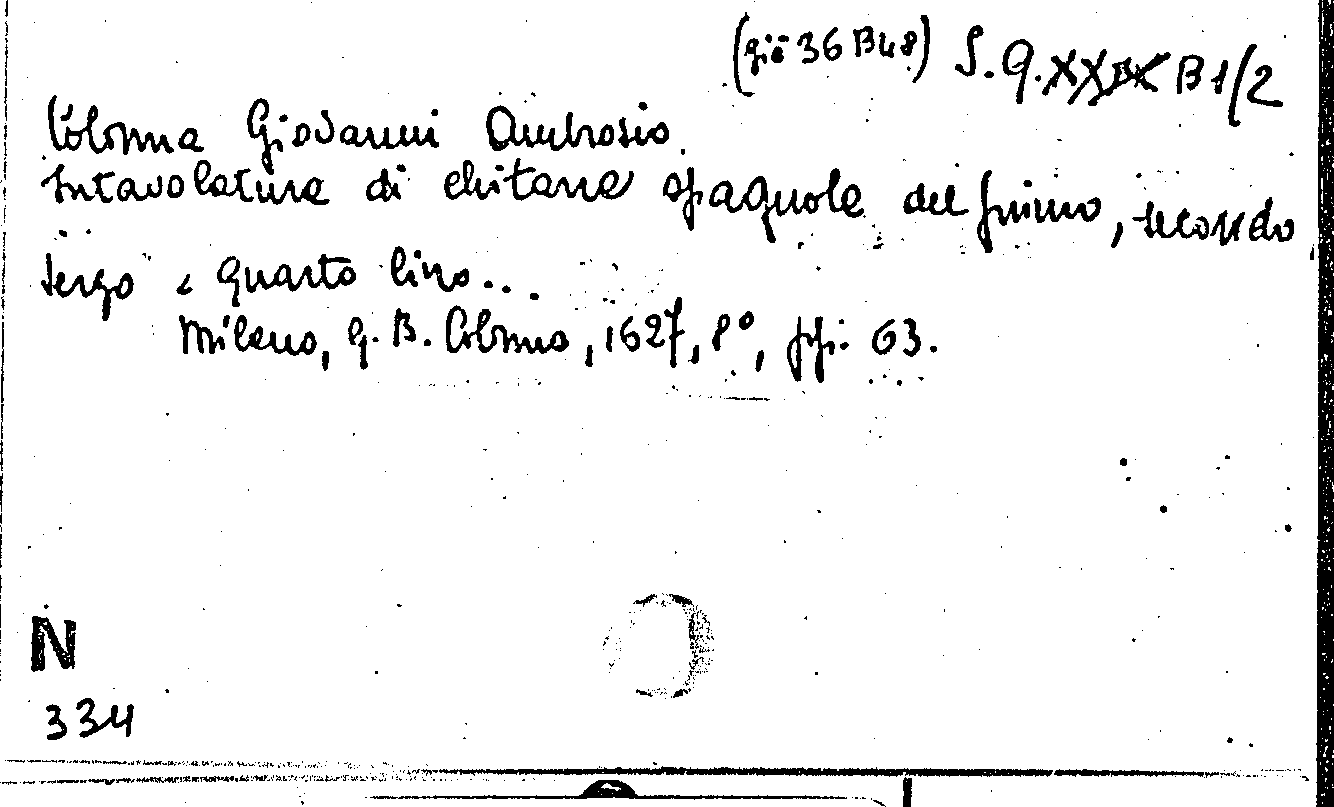 (già 36 B48) S.Q.XXIX B 1/2
Colonna Giovanni Ambrosio.
Intavolatura di chitarra spagnola del primo, secondo,
terzo e quarto libro...
Milano, G. B. Colonna, 1627, 8°, pp. 63.
N
334